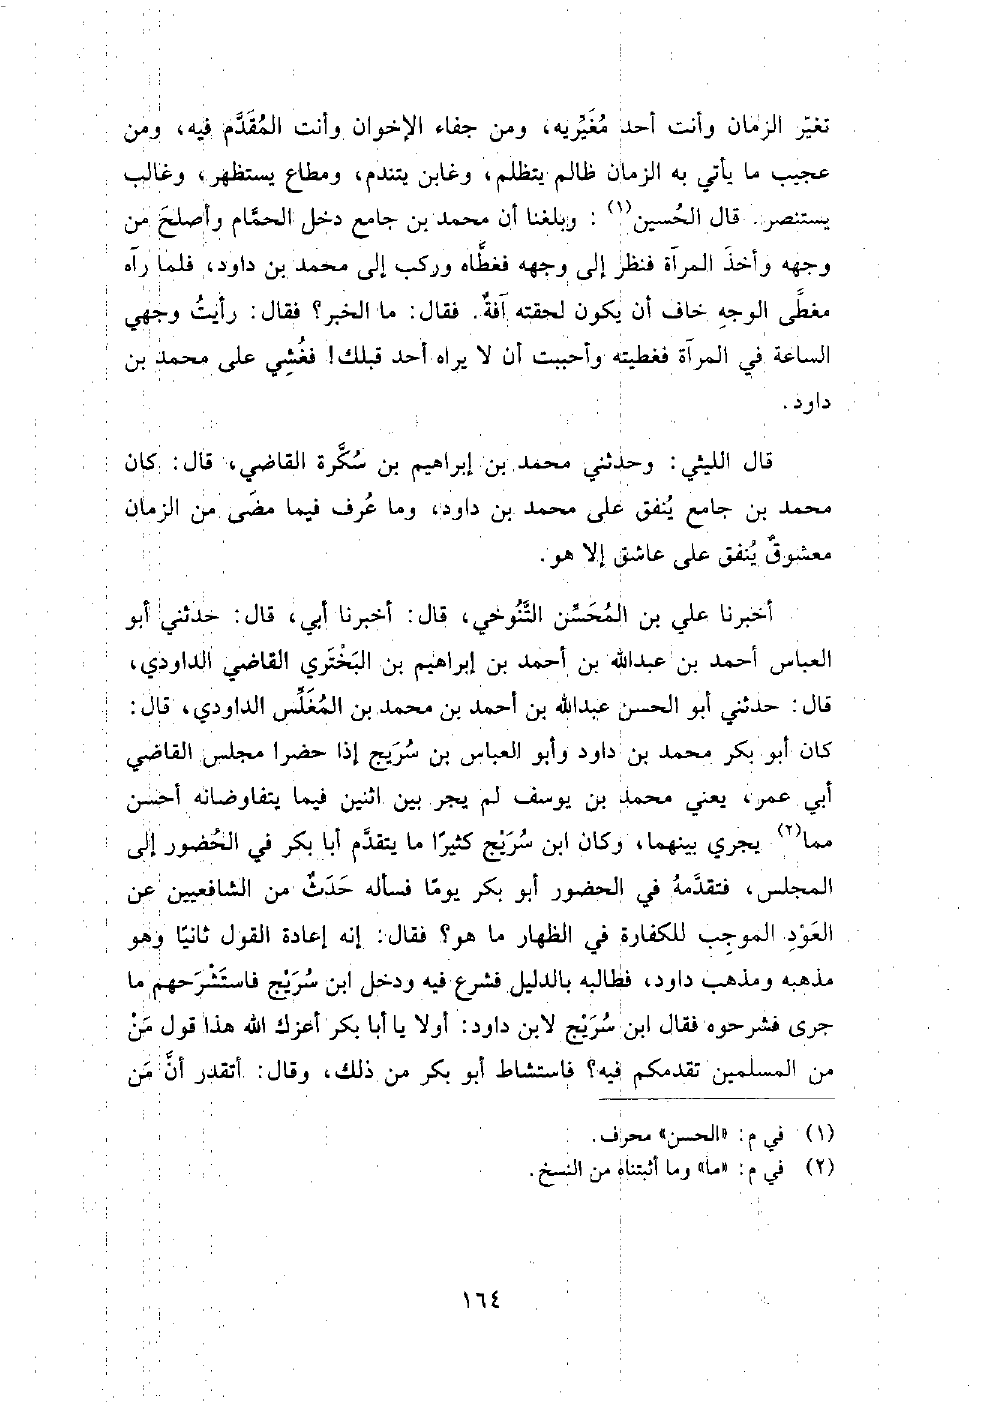 تغيّر الزمان وأنت أحد مُغَيِّريه، ومن جفاء الإخوان وأنت المُقَدَّم فيه، ومن
عجيب ما يأتي به الزمان ظالم يتظلم، وغابن يتندم، ومطاع يستظهر، وغالب
يستنصر. قال الحُسين(١) : وبلغنا أن محمد بن جامع دخل الحمَّام وأصلحَ من
وجهه وأخذَ المرآة فنظر إلى وجهه فغطَّاه وركب إلى محمد بن داود، فلما رآه
مغطَّى الوجهِ خاف أن يكون لحقته آفةٌ. فقال: ما الخبر؟ فقال: رأيتُ وجهي
الساعة في المرآة فغطيته وأحببت أن لا يراه أحد قبلك! فغُشِي على محمد بن
داود.
قال الليثي: وحدثني محمد بن إبراهيم بن سُكَّرة القاضي، قال: كان
محمد بن جامع يُنفق على محمد بن داود، وما عُرف فيما مضَى من الزمان
معشوقٌ يُنفق على عاشق إلا هو.
أخبرنا علي بن المُحَسِّن التَّنُوخي، قال: أخبرنا أبي، قال: حدثني أبو
العباس أحمد بن عبدالله بن أحمد بن إبراهيم بن البَخْتَري القاضي الداودي،
قال: حدثني أبو الحسن عبدالله بن أحمد بن محمد بن المُغَلِّس الداودي، قال:
كان أبو بكر محمد بن داود وأبو العباس بن سُرَيج إذا حضرا مجلس القاضي
أبي عمر، يعني محمد بن يوسف لم يجر بين اثنين فيما يتفاوضانه أحسن
مما(٢) يجري بينهما، وكان ابن سُرَيْج كثيرًا ما يتقدَّم أبا بكر في الحُضور إلى
المجلس، فتقدَّمهُ في الحضور أبو بكر يومًا فسأله حَدَثٌ من الشافعيين عن
العَوْدِ الموجِب للكفارة في الظهار ما هو؟ فقال: إنه إعادة القول ثانيًا وهو
مذهبه ومذهب داود، فطالبه بالدليل فشرع فيه ودخل ابن سُرَيْج فاستَشْرَحهم ما
جرى فشرحوه فقال ابن سُرَيْج لابن داود: أولا يا أبا بكر أعزك الله هذا قول مَنْ
من المسلمين تقدمكم فيه؟ فاستشاط أبو بكر من ذلك، وقال: أتقدر أنَّ مَن
(١) في م: «الحسن» محرف.
(٢) في م: «ما» وما أثبتناه من النسخ.
١٦٤